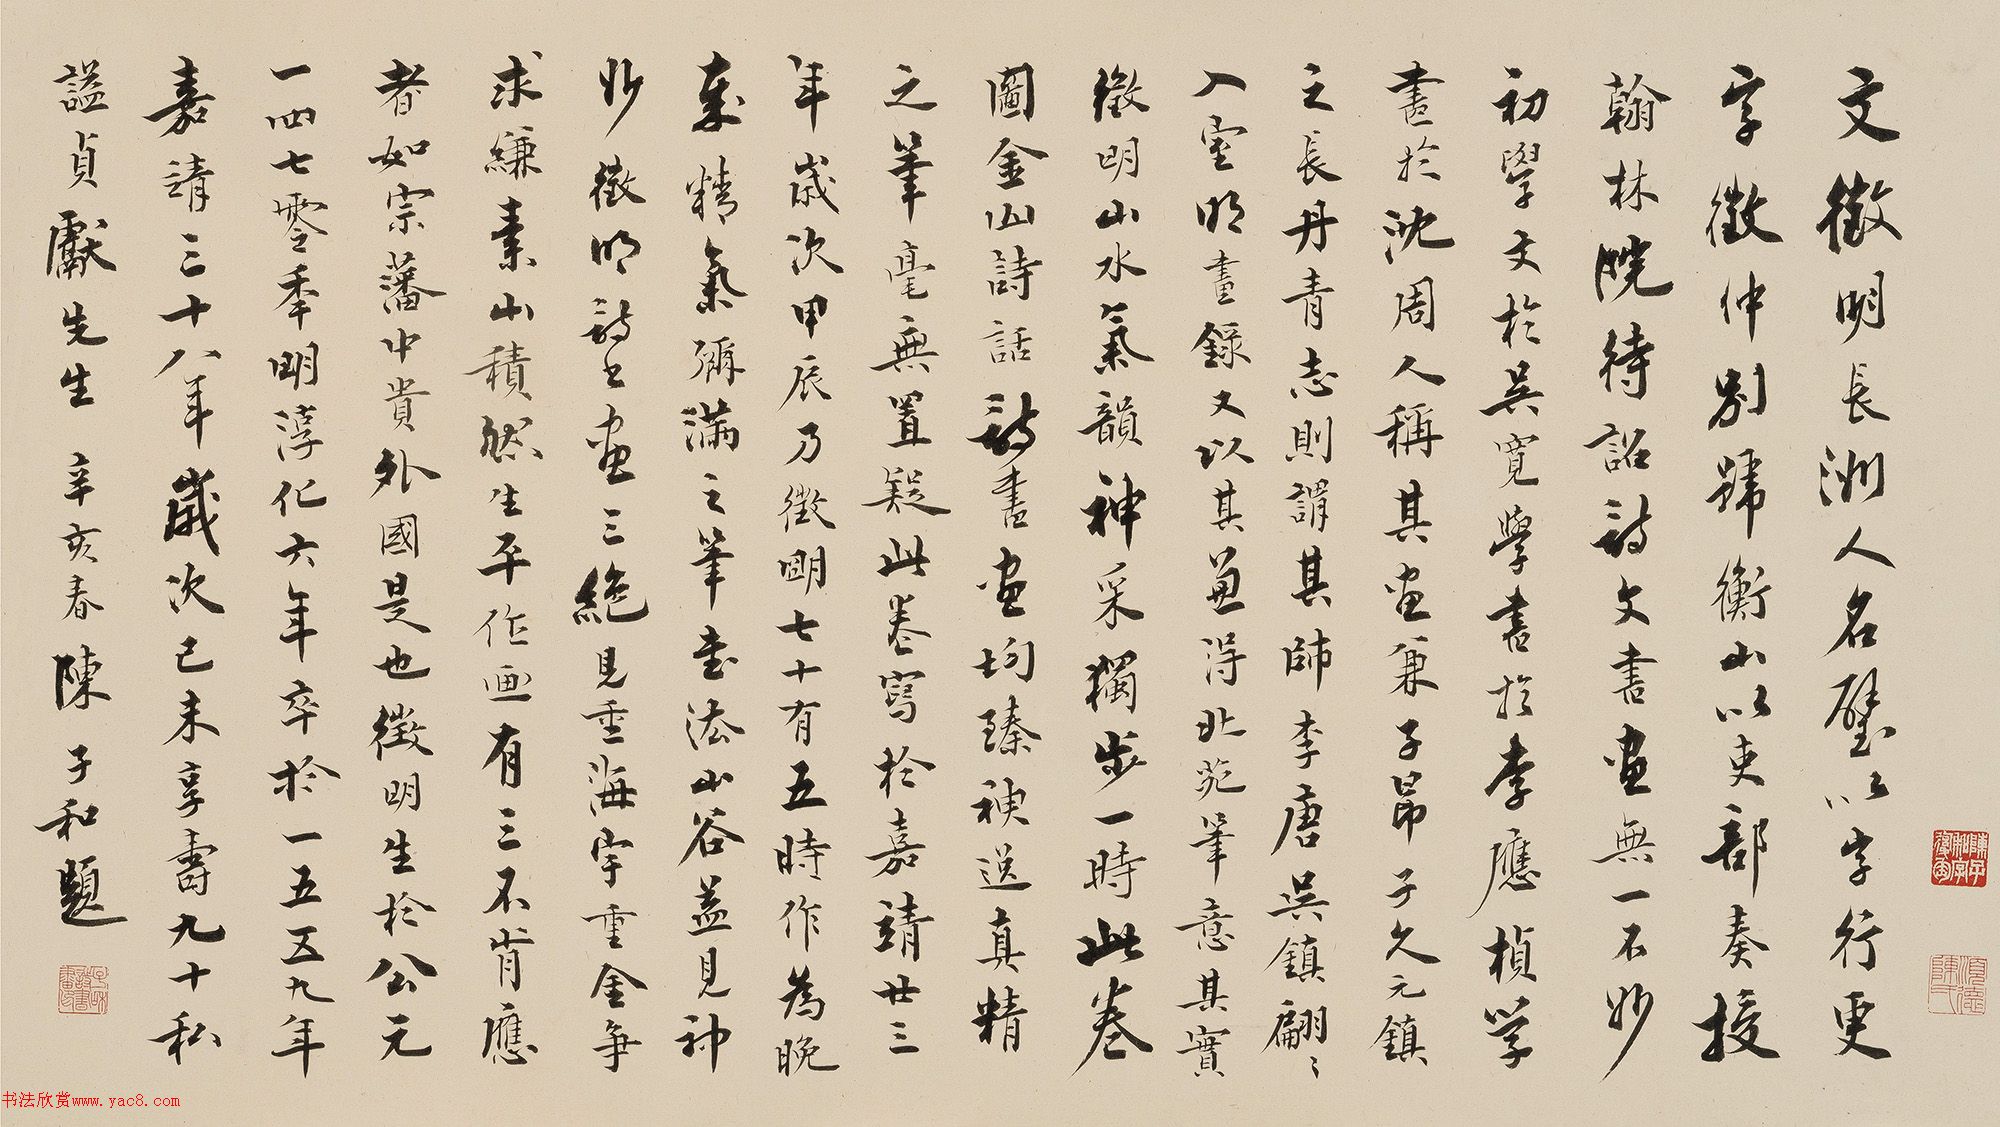 文徵明長洲人名璧以字行更
字徵仲別號衡山以吏部奏授
翰林院待詔詩文書画無一不妙
初學文於吳寬學書於李應楨學
畫於沈周人稱其画兼子昂子久元鎮
之長丹青志則謂其師李唐吳鎮翩〻
入室明畫錄又以其兼得北苑筆意其實
徵明山水氣韻神采獨步一時此卷
圖金山詩話詩書画均臻神逸真精
之筆毫無置疑此卷寫於嘉靖廿三
年歲次甲辰乃徵明七十有五時作為晚
年精氣彌滿之筆書法山谷益見神
妙徵明詩書画三絕見重海宇重金爭
求縑素山積然生平作画有三不肯應
者如宗藩中貴外國是也徵明生於公元
一四七零年明淳化六年卒於一五五九年
嘉靖三十八年歲次己未享壽九十私
謚貞獻先生 辛亥春 陳子和題
书法欣赏www.yac8.com